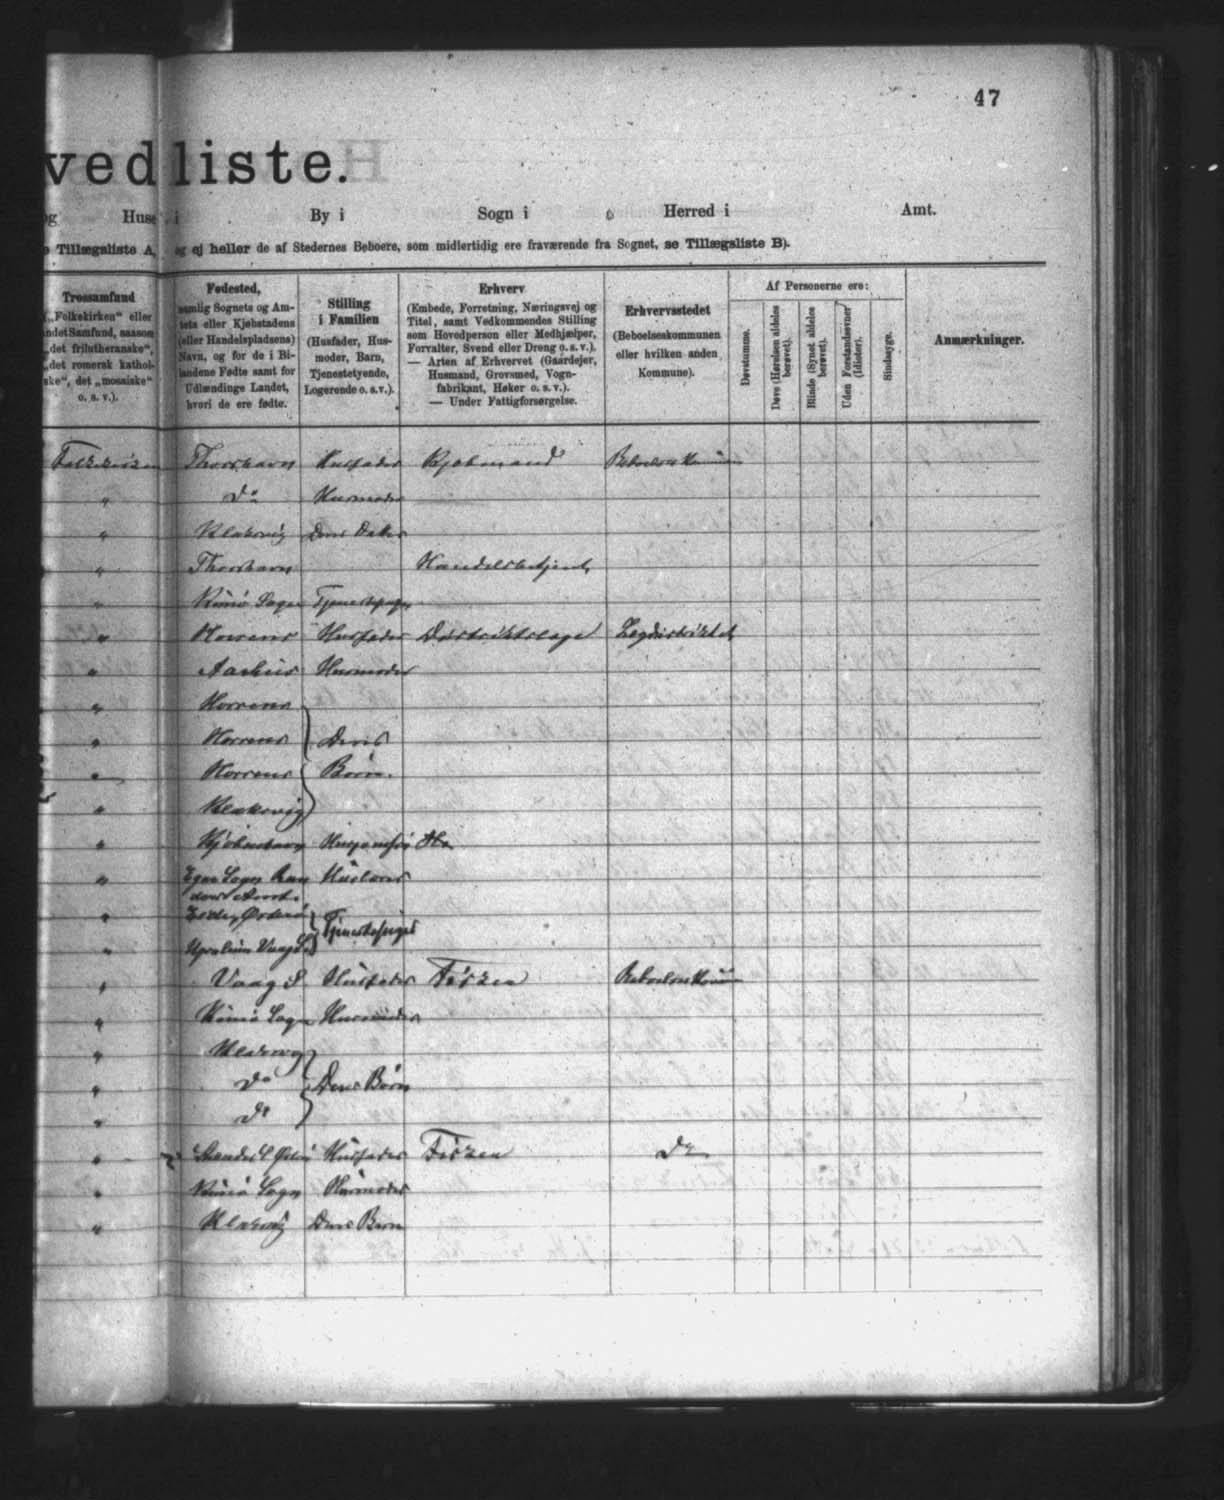 47
vedliste.
og Huse i By i Sogn i Herred i Amt.
e Tillægsliste A, og ej heller de af Stedernes Beboere, som midlertidig ere fraværende fra Sognet, se Tillægsliste B).
Trossamfund
(„Folkekirken“ eller
andet Samfund, saasom
„det frilutheranske“,
„det romersk kathol-
ske“, det „mosaiske“
o. s. v.).
Fødested,
nemlig Sognets og Am-
tets eller Kjøbstadens
(eller Handelspladsens)
Navn, og for de i Bi-
landene Fødte samt for
Udlændinge Landet,
hvori de ere fødte.
Stilling
i Familien
(Husfader, Hus-
moder, Barn,
Tjenestetyende,
Logerende o. s. v.).
Erhverv
(Embede, Forretning, Næringsvej og
Titel, samt Vedkommendes Stilling
som Hovedperson eller Medhjælper,
Forvalter, Svend eller Dreng o. s. v.).
— Arten af Erhvervet (Gaardejer,
Husmand, Grovsmed, Vogn-
fabrikant, Høker o. s. v.).
— Under Fattigforsørgelse.
Erhvervsstedet
(Beboelseskommunen
eller hvilken anden
Kommune).
Af Personerne ere:
Døvstumme.
Døve (Hørelsen aldeles
berøvet).
Blinde (Synet aldeles
berøvet).
Uden Forstandsevner
(Idioter).
Sindssyge.
Anmærkninger.
Folkekirken Thorshavn Husfader Kjøbmand
" Do Husmoder
" Klaksvig Deres Datter
" Thorshavn Handelsbetjent
" Kunø Sogn
" Horsens Husfader Distriktslæge Lægdistriktet
" Aarhus Husmoder
" Horsens
" Horsens Deres
" Horsens Børn
" Klaksvig
" Kjøbenhavn
" Huslærer
" Tjenestepiger
"
" Vaag S Husfader Fisker
" Kunø Sogn Husmoder
" Klaksvig
" Do Deres Børn
" Do
" Husfader Fisker Do
" Kunø Sogn Husmoder
" Klaksvig Deres Barn